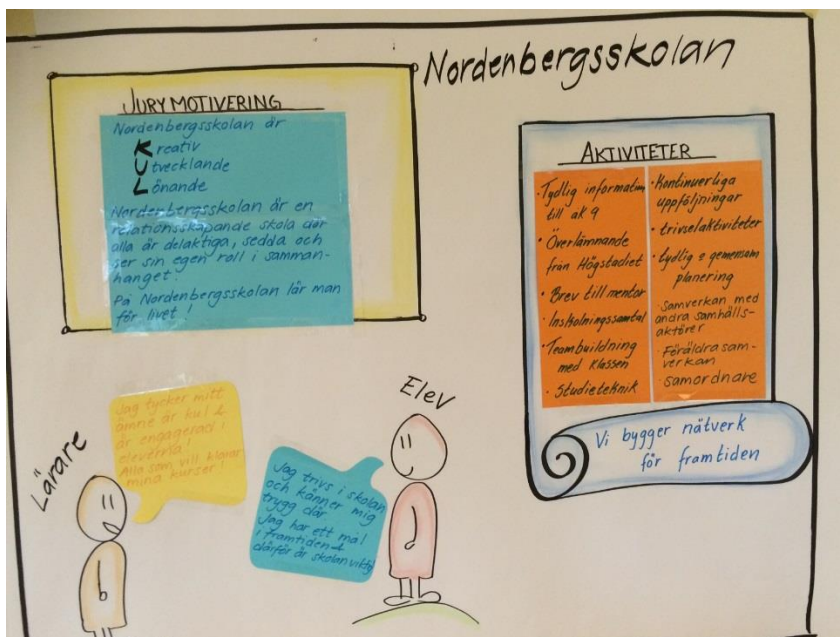 Nordenbergsskolan
JURYMOTIVERING
Nordenbergsskolan är
Kreativ
Utvecklande
Lönande
Nordenbergsskolan är en
relationsskapande skola där
alla är delaktiga, sedda och
ser sin egen roll i samman-
hanget.
På Nordenbergsskolan lär man
för livet!
AKTIVITETER
• Tydlig information
till åk 9
• Överlämnande
från Högstadiet
• Brev till mentor
• Inskolningssamtal
• Teambuildning
med klassen
• Studieteknik
• Kontinuerliga
uppföljningar
• trivselaktiviteter
• tydlig & gemensam
planering
· Samverkan med
andra samhälls-
aktörer
· Föräldrasam-
verkan
· samordnare
Vi bygger nätverk
för framtiden
Lärare
Jag tycker mitt
ämne är kul &
är engagerad i
eleverna!
Alla som vill klarar
mina kurser!
Elev
Jag trivs i skolan
och känner mig
trygg där
Jag har ett mål
i framtiden &
därför är skolan viktig